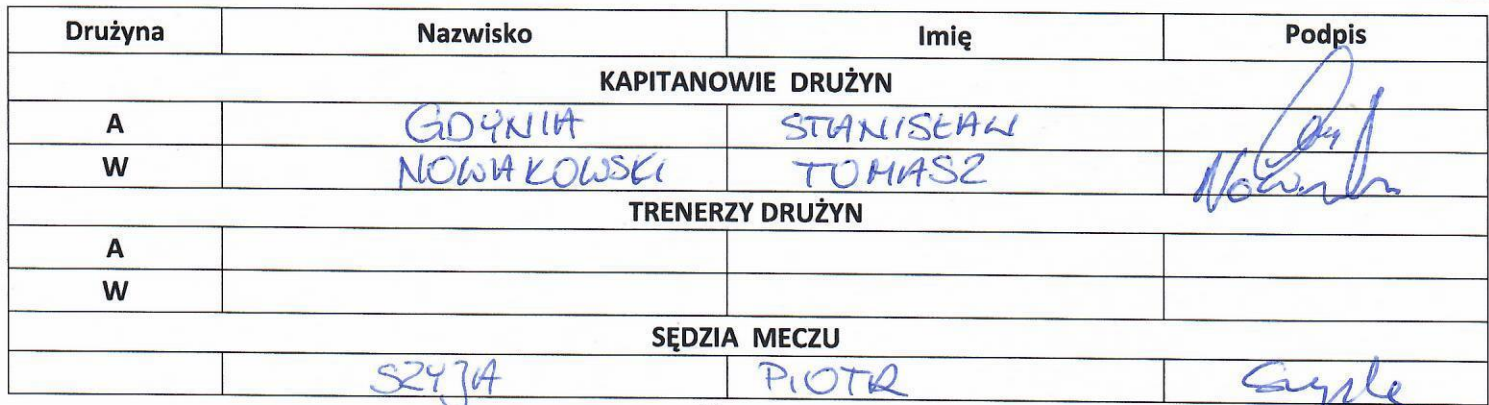 Drużyna Nazwisko Imię Podpis
KAPITANOWIE DRUŻYN
A GDYNIA STANISŁAW
W NOWAKOWSKI TOMASZ
TRENERZY DRUŻYN
A
W
SĘDZIA MECZU
SZYJA PIOTR